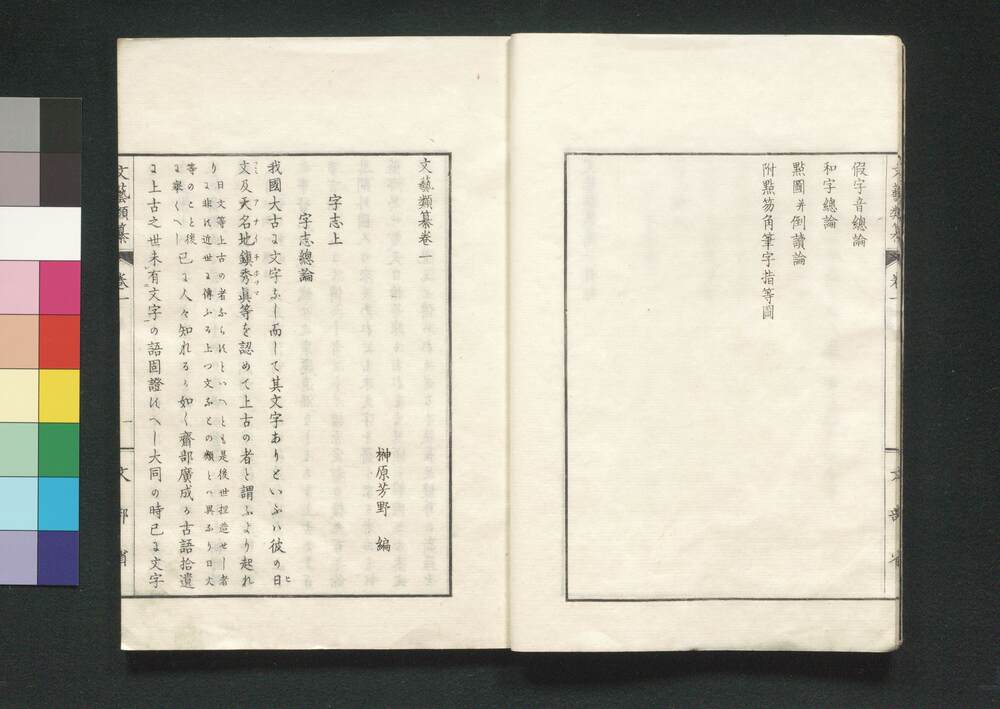 假字音總論
和字總論
㸃圖并倒讀論
附㸃笏角筆字指等圖
文藝類纂
卷一
文部省
文藝類纂卷一
榊原芳野 編
字志上
字志總論
我國大古ニ文字ふし而して其文字ありといふハ彼の日
ヒ
文及天名地鎮秀眞等を認めて上古の者と謂ふより起れ
フミ アナイチ ホツマ
り 日文等上古の者ふらにといへとも是後世担造せし者
ニ非に近世ニ傳ふる上つ文ふとの類とハ異ふり日文
等のこと後
ニ舉くへし
已ニ人々知れるゝ如く齋部廣成ゟ古語拾遺
ニ上古之世未有文字の語固證にへし大同の時已ニ文字
文藝類纂
卷一
一
文部省